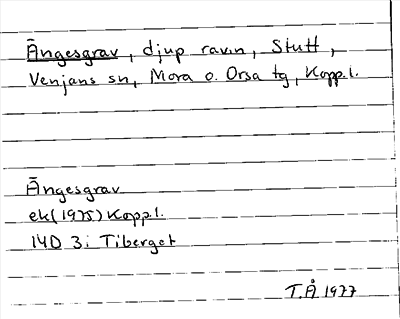 Ängesgrav, djup ravin, Stutt,
Venjans sn, Mora o. Orsa tg, Kopp.l.
Ängesgrav
ek (1975) Kopp.l.
14D 3i Tiberget
T.Å 1977